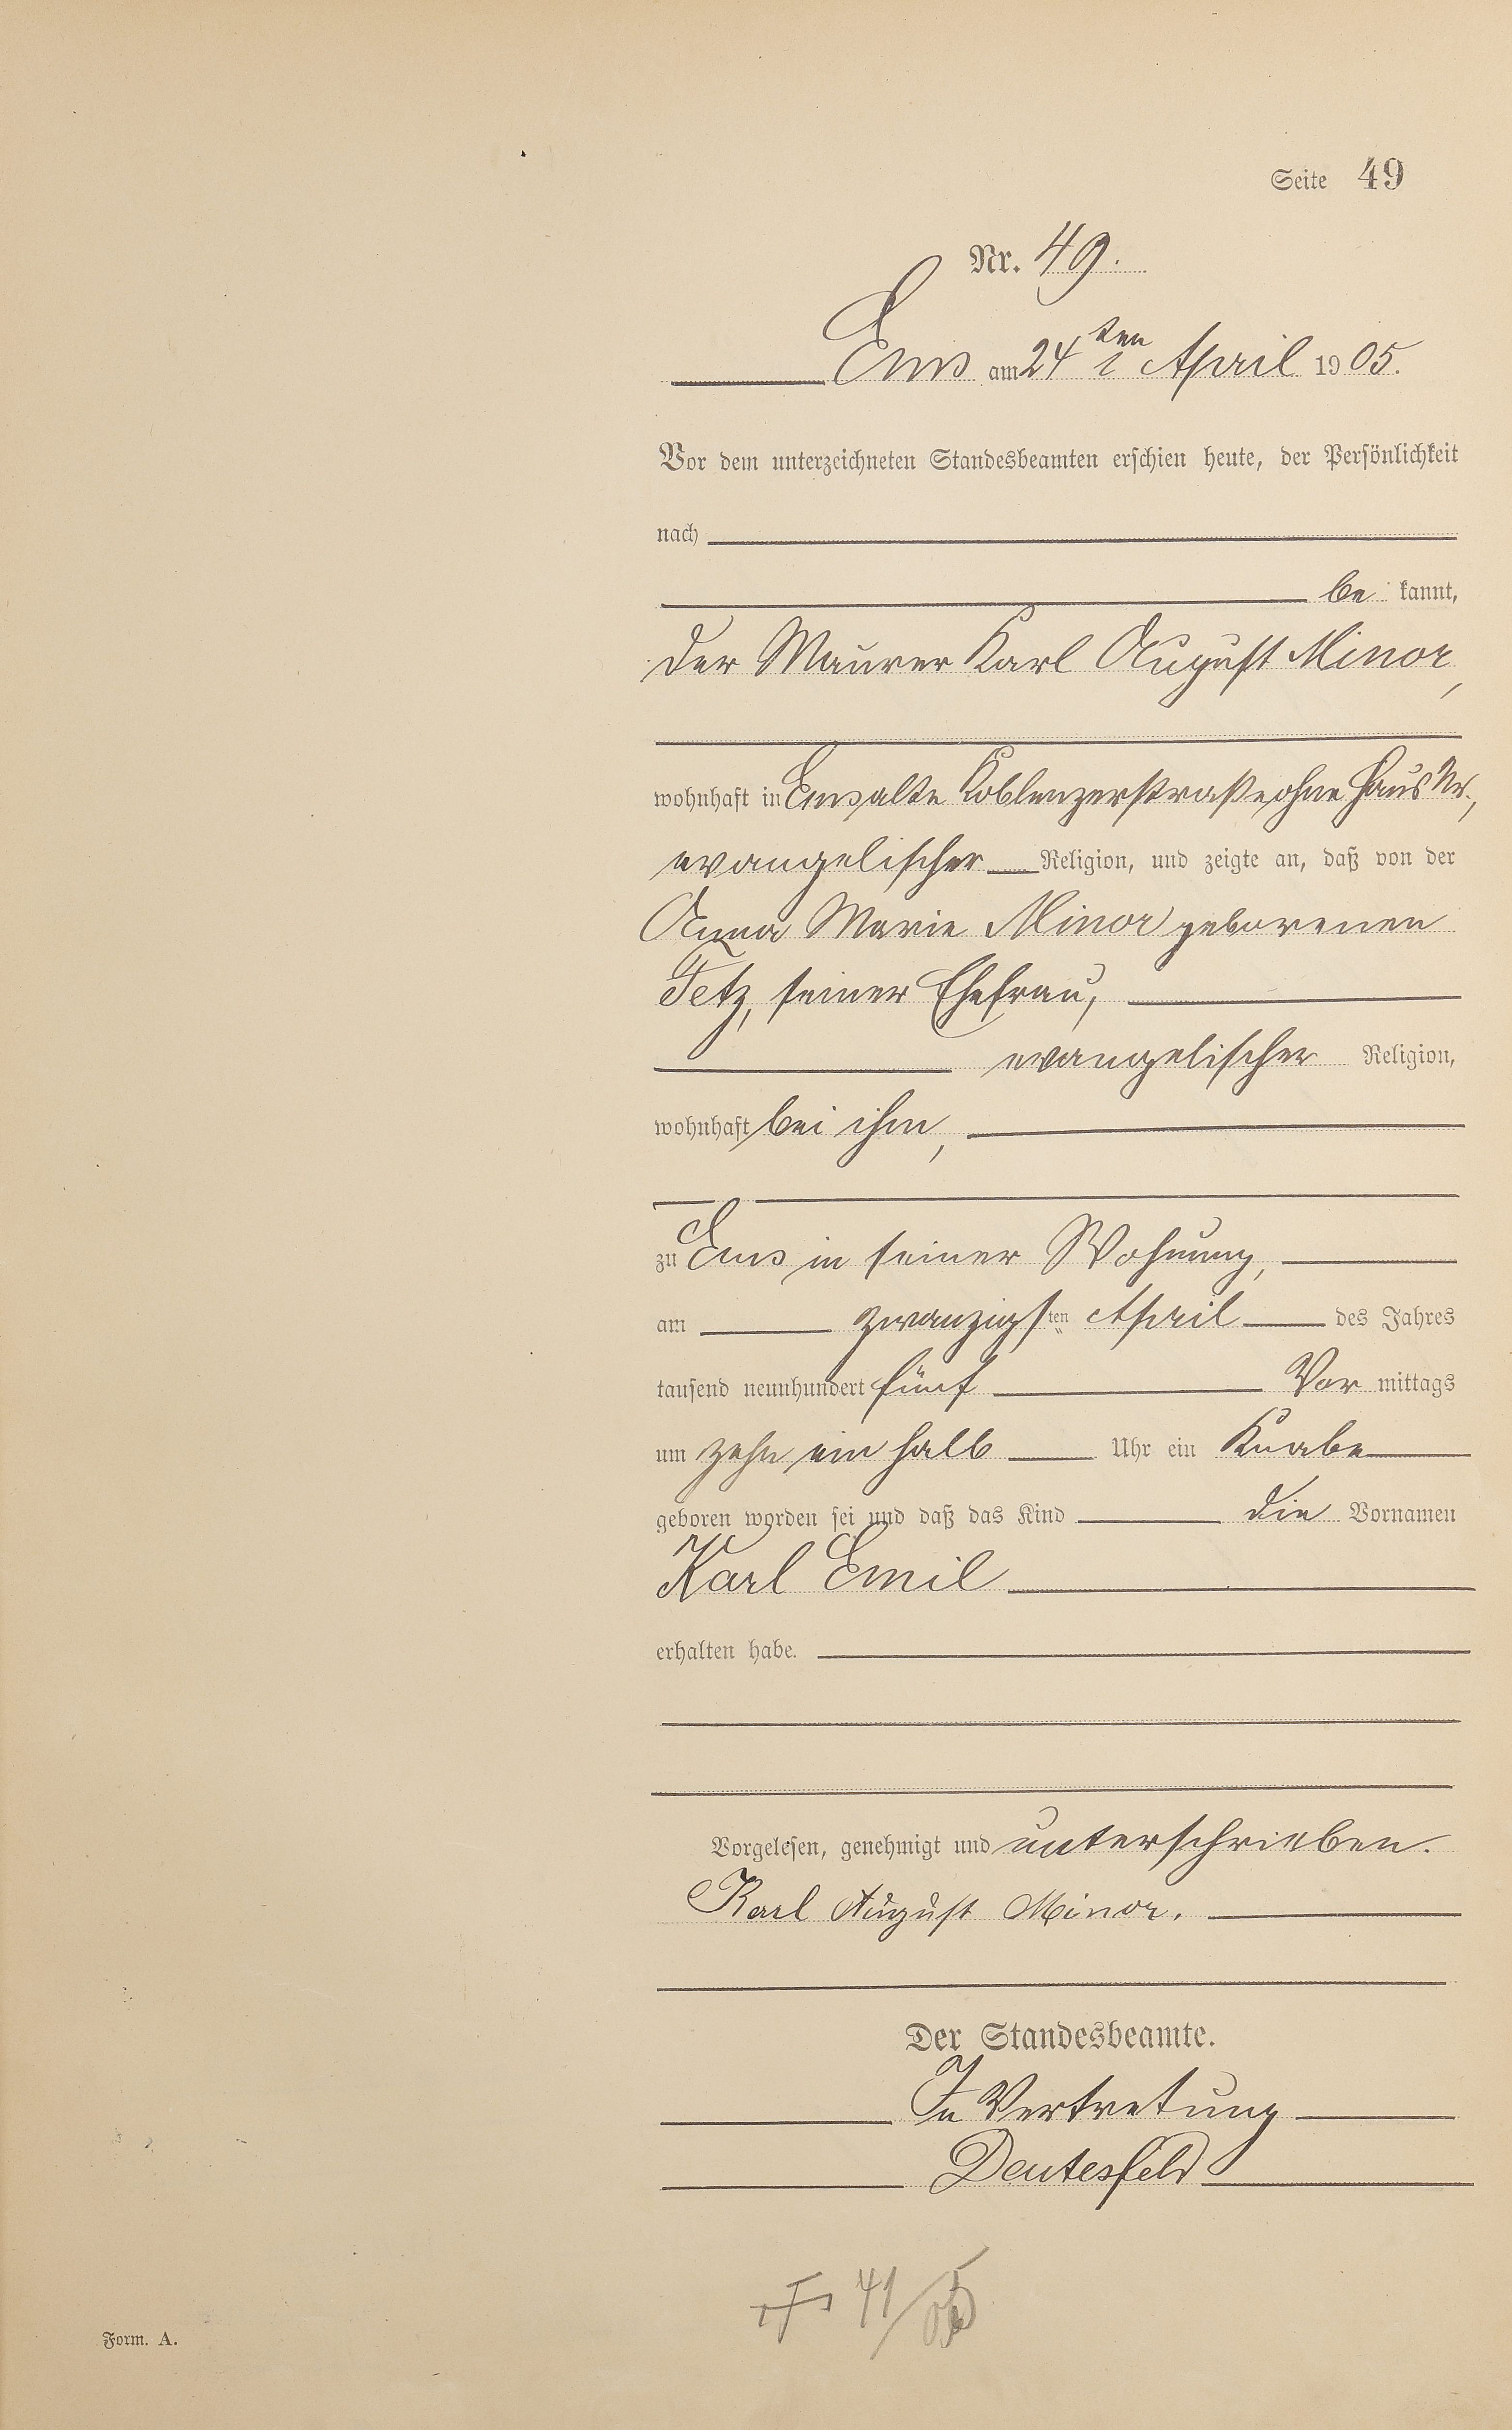 Seite 49
Nr. 49.
Ems am 24ten April 1905.
Vor dem unterzeichneten Standesbeamten erschien heute, der Persönlichkeit
nach
be kannt,
der Maurer Karl August Minor,
wohnhaft in Ems alte Koblenzerstraße ohne Haus Nr.,
evangelischer Religion, und zeigte an, daß von der
Anna Marie Minor geborenen
Fetz, seiner Ehefrau,
evangelischer Religion,
wohnhaft bei ihm,
zu Ems in seiner Wohnung,
am zwanzigsten April des Jahres
tausend neunhundert fünf Vor mittags
um zehn ein halb Uhr ein Knabe
geboren worden sei und daß das Kind die Vornamen
Karl Emil
erhalten habe.
Vorgelesen, genehmigt und unterschrieben.
Karl August Minor.
Der Standesbeamte.
In Vertretung
Deutesfeld
41/
Form. A.